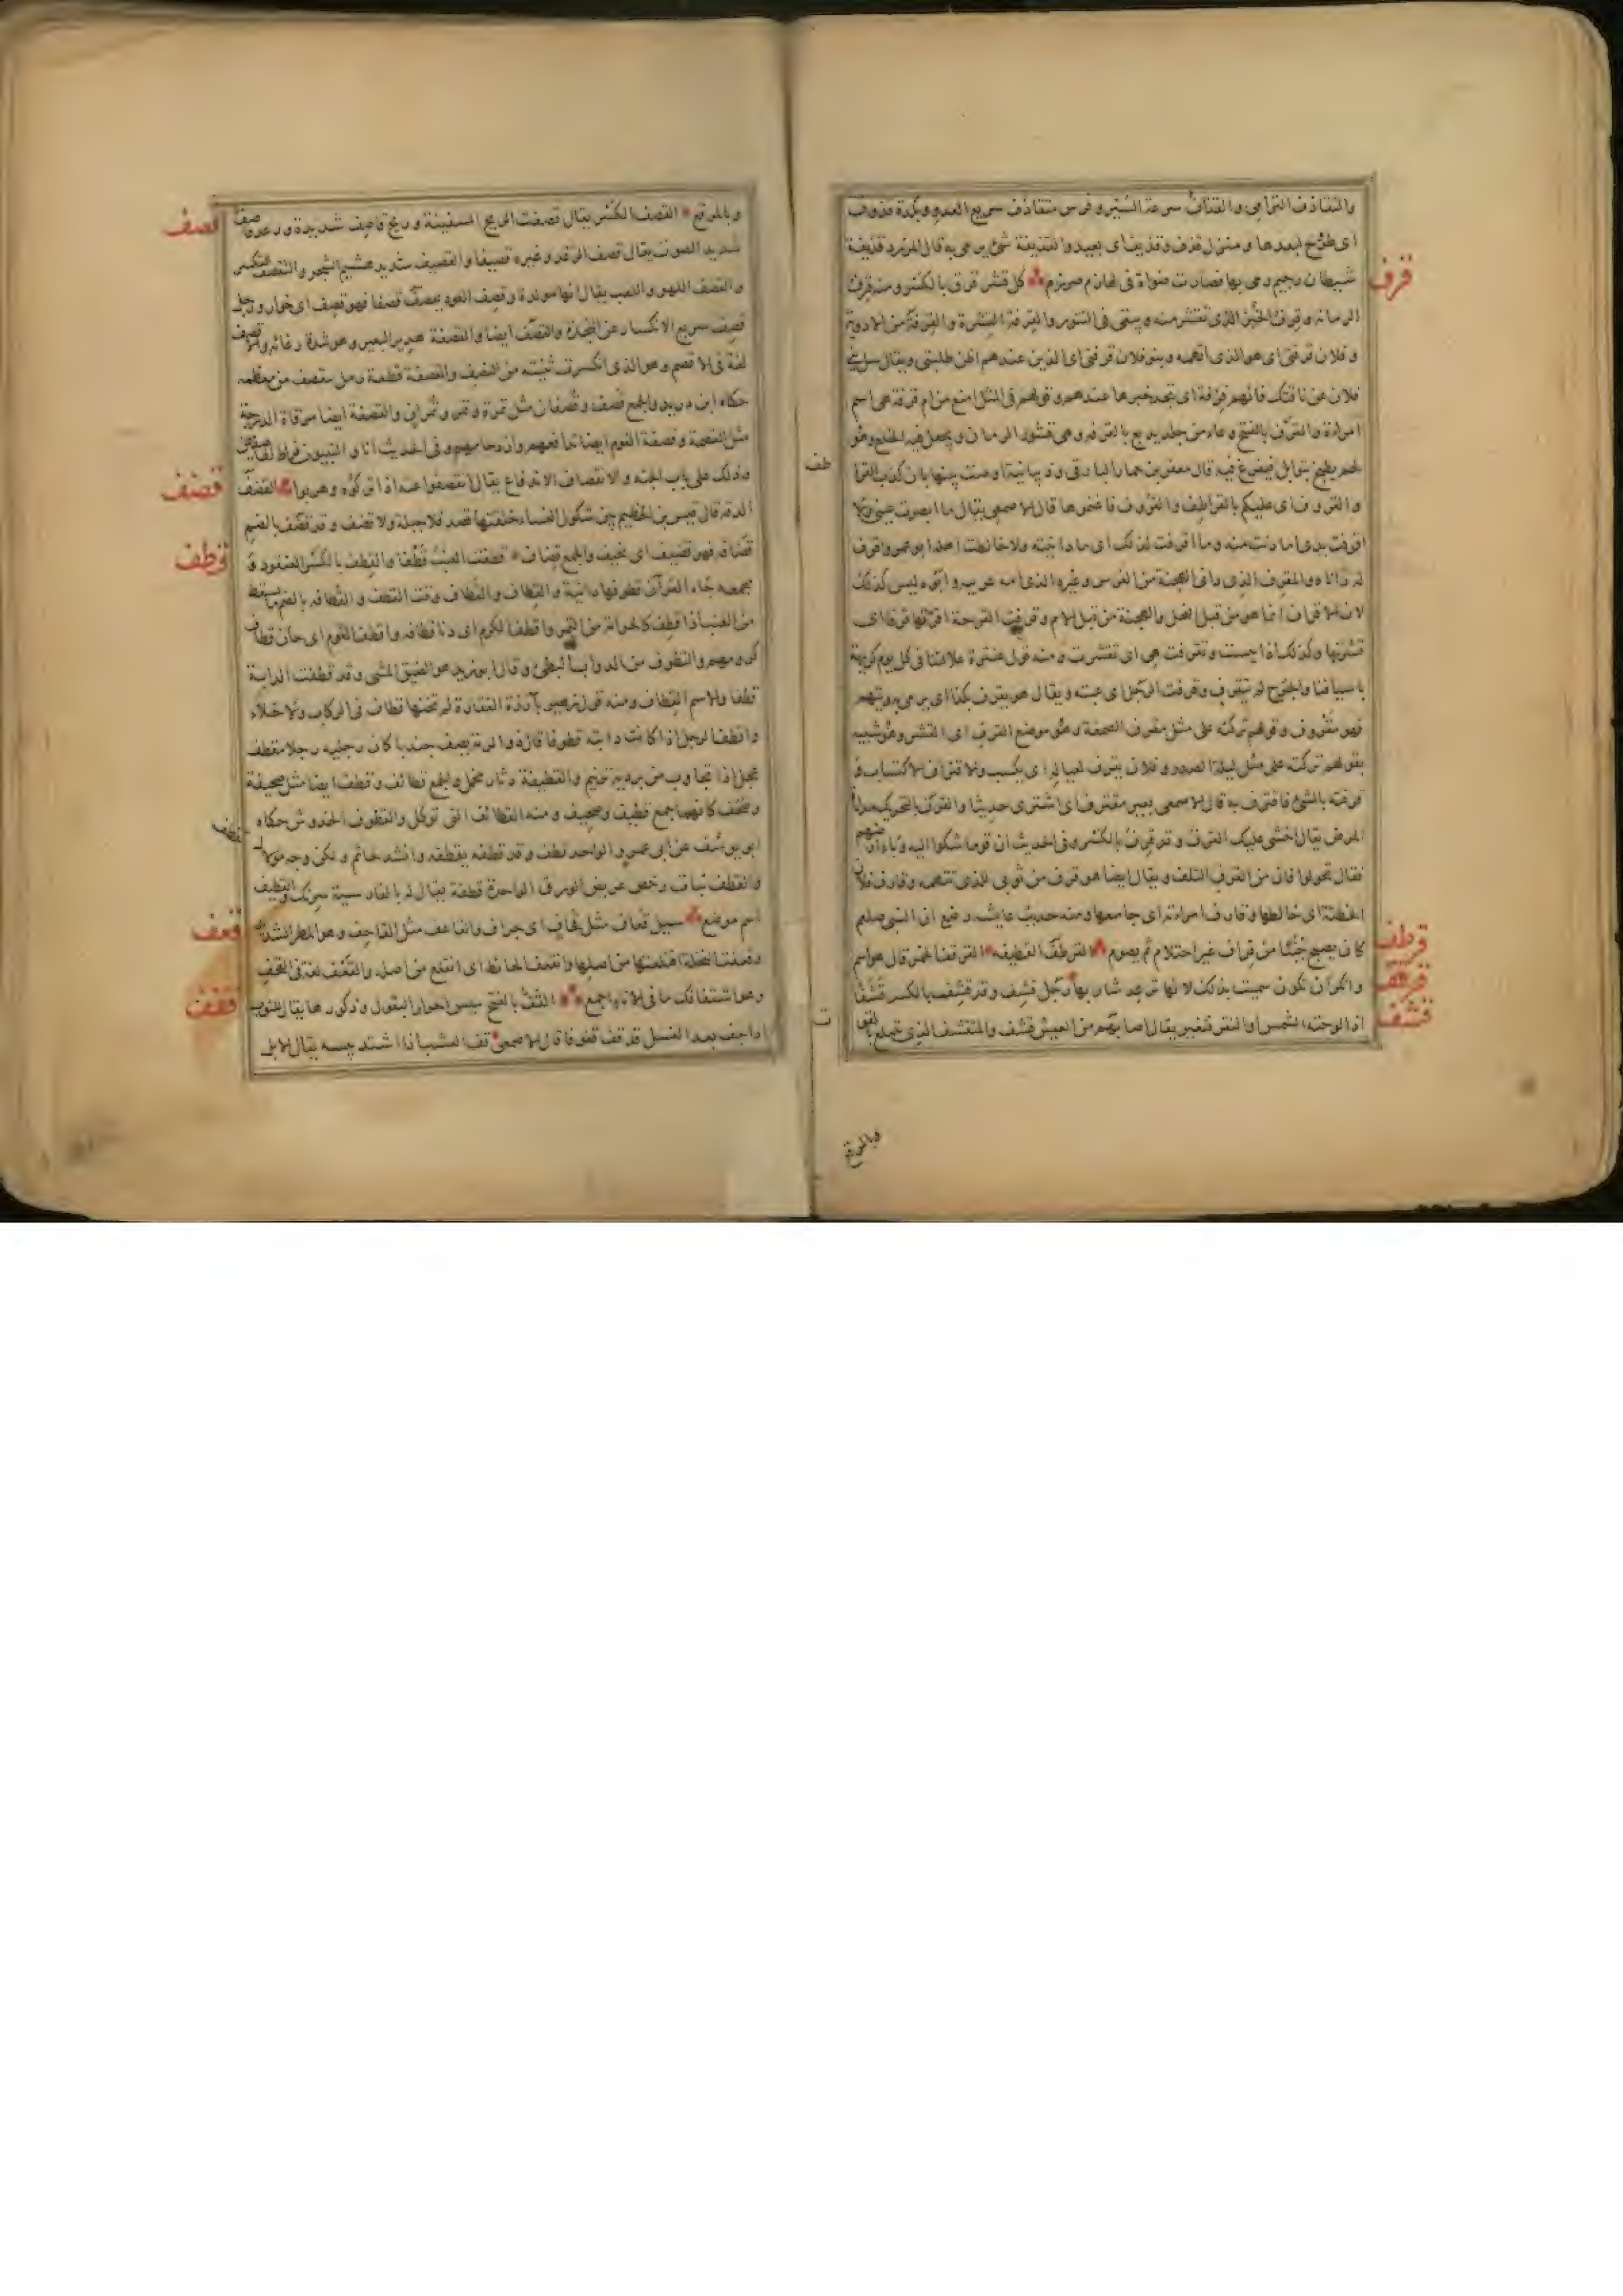 والتقاذف الترامي والقذاف سرعة السير وفرس متقاذف سريع العدو وبلدة قذوف
اى طروح لبعدها ومنزل قذف وقذيف اى بعيد والقذيفة شئ يرمى به قال المزرد قذيفة
شيطان رجيم رمى بها فصارت ضواة فى لهازم ضرزم كل قشر قرف بالكسر ومنه قرف
الرمانة وقرف الخبز الذى تقشر منه ويبقى فى التنور والقرفة القشرة والقرفة من الادوية
وفلان قرفتى اى هو الذى اتهمه وبنو فلان قرفتى اى الذين عندهم اظن طلبتى ويقال سل بنى
فلان عن ناقتك فانهم قرفة اى تجد خبرها عندهم وقولهم فى المثل امنع من ام قرفة هى اسم
امراة والقرف بالفتح وعاء من جلد يدبغ بالقرفة وهى قشور الرمان ويجعل فيه الخلع وهو
لحم يطبخ بتوابل فيفرغ فيه قال معقر بن حمار البارقى وذبيانية وصت بنيها بان كذب القراطف
والقروف اى عليكم بالقراطف والقروف فاغنموها قال الاصمعى يقال ما ابصرت عينى ولا
اقرفت يدى اى ما دنت منه وما اقرفت لذلك اى ما دانيته ولا خالطت اهله ابو عمرو اقرف
له داناه والمقرف الذى دانى الهجنة من الفرس وغيره الذى امه عربية وابوه ليس كذلك
لان الاقراف انما هو من قبل الفحل والهجنة من قبل الام وقرفت القرحة اقرفها قرفا اى
قشرتها وكذلك اذا يبست وتقرفت هى اى تقشرت ومنه قول عنترة علالتنا فى كل يوم كريهة
باسيافنا والجرح لم يتقرف وقرفت الرجل اى عبته ويقال هو يقرف بكذا اى يرمى به ويتهم
فهو مقروف وقولهم تركته على مثل مقرف الصمغة وهو موضع القرف اى القشر وهو شبيه
بقولهم تركته على مثل ليلة الصدر وفلان يقرف لعياله اى يكسب والاقتراف الاكتساب و
قرفته بالشئ فاقترف به قال الاصمعى بعير مقترف اى اشترى حديثا والقرف بالتحريك مداناة
المرض يقال اخشى عليك القرف وقد قرف بالكسر وفى الحديث ان قوما شكوا اليه وباء ارضهم
فقال تحولوا فان من القرف التلف ويقال ايضا هو قرف من ثوبى للذى تتهمه وقارف فلان
الخطيئة اى خالطها وقارف امراته اى جامعها ومنه حديث عايشه رضع ان النبى صلعم
كان يصبح جنبا من قراف غير احتلام ثم يصوم القرطف القطيفة القرقف الخمر قال هو اسم
وانكر ان تكون سميت بذلك لانها ترعد شاربها رجل قشف وقد قشف بالكسر قشفا
اذا لوحته الشمس او الفقر فتغير يقال اصابهم من العيش قشف والمتقشف الذى يتبلغ بالقوت
قرف
قرطف
قرقف
قشف
وبالمرقع
وبالمرقع القصف الكسر يقال قصفت الريح السفينة وريح قاصف شديدة ورعد قاصف
شديد الصوت يقال قصف الرعد وغيره قصيفا والقصيف هشيم الشجر والتقصف التكسر
والقصف اللهو واللعب يقال انها مولدة وقصف العود يقصف قصفا فهو قصف اى خوار ورجل
قصف سريع الانكسار عن النجدة والقصف ايضا والقصفة هدير البعير وهو شدة رغائه والاقصف
لغة فى الاقصم وهو الذى انكسرت ثنيته من النصف والقصفة قطعة رمل تنقصف من معظمه
حكاه ابن دريد والجمع قصف وقصفان مثل تمرة وتمر وتمران والقصفة ايضا مرقاة الدرجة
مثل القصمة وقصفة القوم ايضا تدافعهم وازدحامهم وفى الحديث انا والنبيون فراط لقاصفين
وذلك على باب الجنه والانقصاف الاندفاع يقال انقصفوا عنه اذا تركوه ومروا القضف
الدقة قال قيس بن الخطيم بين شكول النساء خلقتها قصد فلا جبلة ولا قضف وقد قضف بالضم
قضافة فهو قضيف اى نحيف والجمع قضاف قطفت العنب قطفا والقطف بالكسر العنقود و
بجمعه جاء القرآن قطوفها دانية والقطاف والقطاف وقت القطف والقطافة بالضم ما يسقط
من العنب اذا قطف كالجرامة من التمر واقطف الكرم اى دنا قطافه واقطف القوم اى حان قطاف
كرومهم والقطوف من الدواب البطئ وقال ابو زيد هو الضيق المشى وقد قطفت الدابة
قطفا والاسم القطاف ومنه قول زهير بآرزة الفقارة لم يخنها قطاف فى الركاب ولا خلاء
واقطف الرجل اذا كانت دابته قطوفا قال ذو الرمة يصف جندبا كان رجليه رجلا مقطف
عجل اذا تجاوب من برديه ترنيم والقطيفة دثار مخمل والجمع قطائف وقطف ايضا مثل صحيفة
وصحف كانهما جمع قطيف وصحيف ومنه القطائف التى توكل والقطوف الخدوش حكاه
ابو يوسف عن ابى عمرو الواحد قطف وقد قطفه يقطفه وانشد لحاتم ولكن وجه مولاك
والقطف نبات رخص عريض الورق الواحدة قطفة يقال له بالفارسية سرنك والقطيف
اسم موضع سيل قعاف مثل جحاف اى جراف والقاعف مثل القاحف وهو المطر الشديد
وقعفت النخلة اقتلعتها من اصلها وانقعف الحائط اى انقلع من اصله والقعف لغة فى القحف
وهو اشتفافك ما فى الاناء اجمع القف بالفتح يبيس احرار البقول وذكورها يقال للثوب
اذا جف بعد الغسل قد قف قفوفا قال الاصمعى قف العشب اذا اشتد يبسه يقال الابل
قصف
قضف
قطف
قعف
قفف